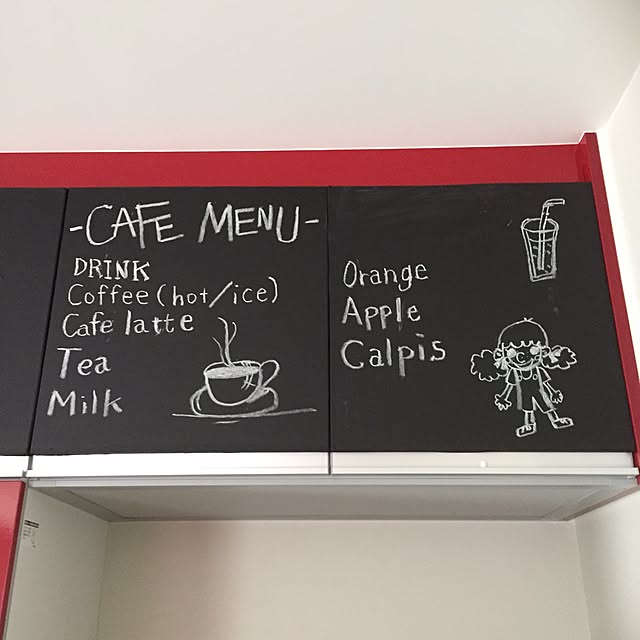 -CAFE MENU-
DRINK
Coffee (hot/ice)
Cafe latte
Tea
Milk
Orange
Apple
Calpis